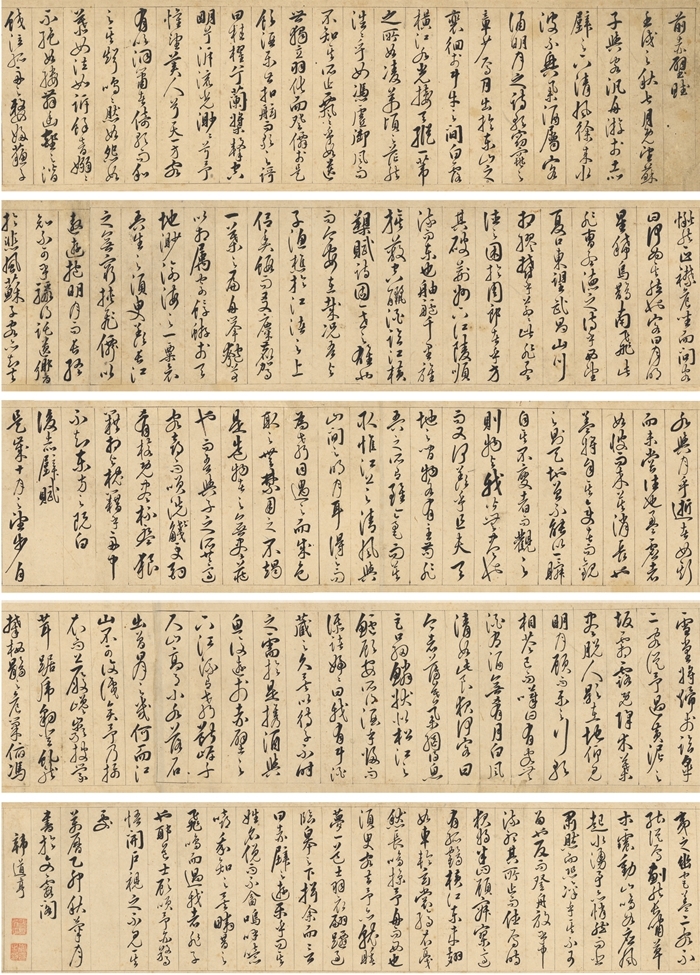 前赤壁賦
壬戌之秋七月既望蘇
子與客汎舟游於赤
壁之下清風徐來水
波不興舉酒屬客
誦明月之詩歌窈窕之
章少焉月出於東山之上
徘徊於斗牛之間白露
橫江水光接天縱一葦
之所如凌萬頃之茫然
浩浩乎如馮虛御風而
不知其所止飄飄乎如遺
世獨立羽化而登僊於是
飲酒樂甚扣舷而歌之歌
曰桂櫂兮蘭槳擊空
明兮泝流光渺渺兮予
懷望美人兮天一方客
有吹洞簫者倚歌而和
之其聲嗚嗚然如怨如
慕如泣如訴餘音嫋嫋
不絕如縷舞幽壑之潛
蛟泣孤舟之嫠婦蘇子
愀然正襟危坐而問客
曰何為其然也客曰月明
星稀烏鵲南飛此
非曹孟德之詩乎西望
夏口東望武昌山川
相繆鬱乎蒼蒼此非孟
德之困於周郎者乎方
其破荊州下江陵順
流而東也舳艫千里旌
旗蔽空釃酒臨江橫
槊賦詩固一世之雄也
而今安在哉況吾與
子漁樵於江渚之上
侶魚蝦而友麋鹿駕
一葉之扁舟舉匏尊
以相屬寄蜉蝣於天
地渺滄海之一粟哀
吾生之須臾羨長江
之無窮挾飛僊以
遨遊抱明月而長終
知不可乎驟得託遺響
於悲風蘇子曰客亦知夫
水與月乎逝者如斯
而未嘗往也盈虛者
如彼而卒莫消長也
蓋將自其變者而觀
之則天地曾不能以瞬
自其不變者而觀之
則物與我皆無盡也
而又何羨乎且夫天
地之間物各有主苟非
吾之所有雖一毫而莫
取惟江上之清風與
山間之明月耳得之而
為聲目遇之而成色
取之無禁用之不竭
是造物者之無盡藏
也而吾與子之所共適
客喜而笑洗盞更酌
肴核既盡杯盤狼
藉相與枕藉乎舟中
不知東方之既白
後赤壁賦
是歲十月之望步自
雪堂將歸於臨皋
二客從予過黃泥之
坂霜露既降木葉
盡脫人影在地仰見
明月顧而樂之行歌
相答已而嘆曰有客無
酒有酒無肴月白風
清如此良夜何客曰
今者薄暮舉網得魚
巨口細鱗狀似松江之
鱸顧安所得酒乎歸而
謀諸婦婦曰我有斗酒
藏之久矣以待子不時
之需於是攜酒與
魚復遊於赤壁之
下江流有聲斷岸千
尺山高月小水落石
出曾日月之幾何而江
山不可復識矣予乃攝
衣而上履巉巖披蒙
茸踞虎豹登虬龍
攀栖鶻之危巢俯馮
夷之幽宮蓋二客不
能從焉劃然長嘯草
木震動山鳴谷應風
起水湧予亦悄然而悲
肅然而恐凜乎其不可
留也反而登舟放乎中
流聽其所止而休焉時
夜將半四顧寂寥適
有孤鶴橫江東來翅
如車輪玄裳縞衣戛
然長鳴掠予舟而西也
須臾客去予亦就睡
夢一道士羽衣翩躚過
臨皋之下揖余而言
曰赤壁之遊樂乎問其
姓名俛而不答嗚呼噫
嘻我知之矣疇昔之夜
飛鳴而過我者非子
也耶道士顧笑予亦驚
悟開戶視之不見其
處
萬曆乙卯秋月
書於文閣
韓道亨